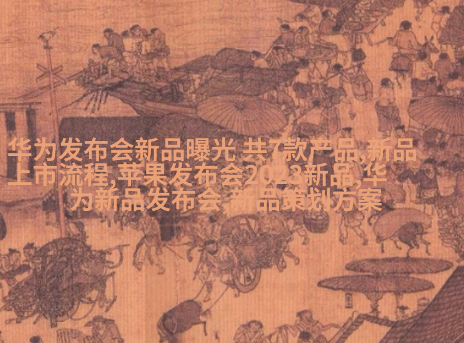 华为发布会新品曝光 共7款产品,新品
上市流程,苹果发布会2022新品,华
为新品发布会 新品策划方案